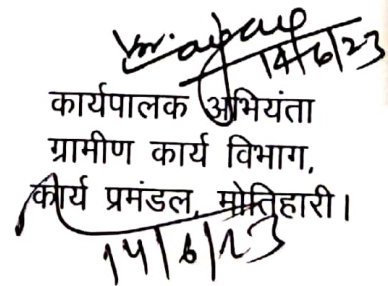 14/6/23
कार्यपालक अभियंता
ग्रामीण कार्य विभाग,
कार्य प्रमंडल, मोतिहारी।
14/6/23